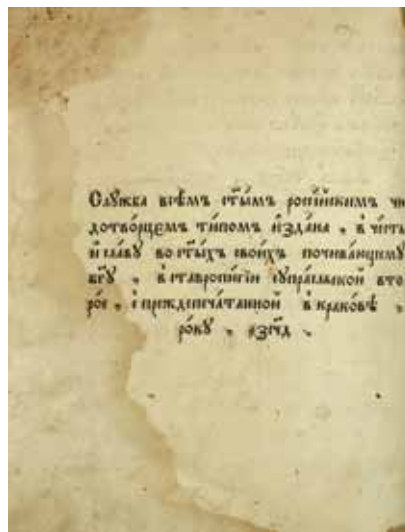 Слꙋжба всѣмъ ст҃ы́мъ россі́йскимъ чю
дотво́рцемъ ти́помъ и҆зда́на , в че́сть
и҆ сла́вꙋ во ст҃ы́хъ свои́хъ почива́ющемꙋ
бг҃ꙋ , в ставропи́гїи сꙋпра́сльской вто
ро́е , с преждепеча́танной в кра́ковѣ ,
ро́кꙋ ,